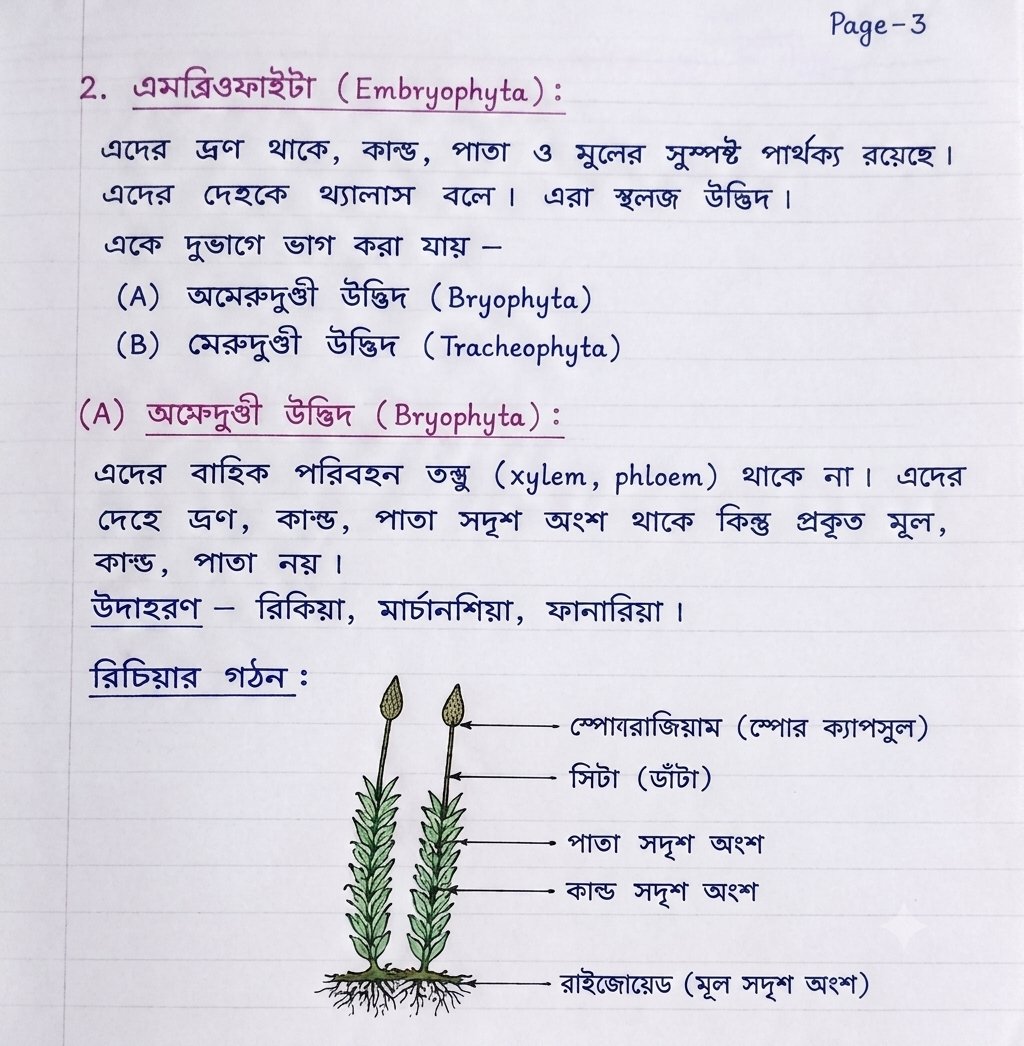 Page-3
2. এমব্রিওফাইটা (Embryophyta) :
এদের ভ্রণ থাকে, কান্ড, পাতা ও মুলের সুস্পষ্ট পার্থক্য রয়েছে।
এদের দেহকে থ্যালাস বলে। এরা স্থলজ উদ্ভিদ।
একে দুভাগে ভাগ করা যায় –
(A) অমেরুদুণ্ডী উদ্ভিদ (Bryophyta)
(B) মেরুদুণ্ডী উদ্ভিদ (Tracheophyta)
(A) উদ্ভিদ (Bryophyta) :
এদের বাহিক পরিবহন তন্তু (xylem, phloem) থাকে না। এদের
দেহে ভ্রণ, কান্ড, পাতা সদৃশ অংশ থাকে কিন্তু প্রকৃত মূল,
কান্ড, পাতা নয়।
উদাহরণ – রিকিয়া, মার্চানশিয়া, ফানারিয়া।
রিচিয়ার গঠন :
(স্পোর ক্যাপসুল)
সিটা (ডাঁটা)
পাতা সদৃশ অংশ
কান্ড সদৃশ অংশ
রাইজোয়েড (মূল সদৃশ অংশ)